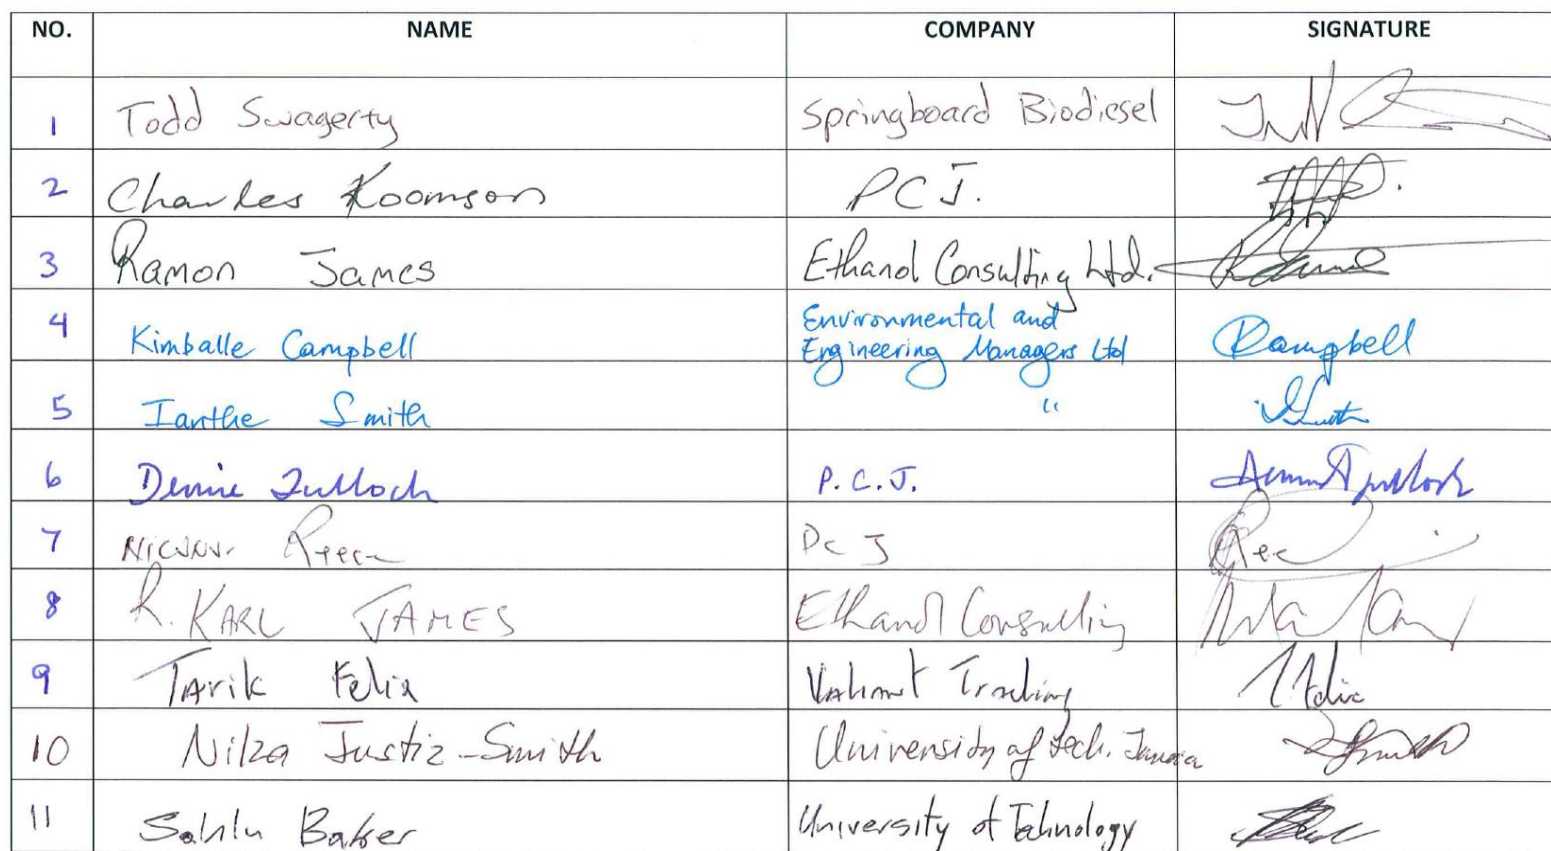 NO. NAME COMPANY SIGNATURE
1 Todd Swagerty Springboard Biodiesel
2 Charles Koomson PCJ.
3 Ramon James Ethanol Consulting Ltd.
4 Kimballe Campbell Environmental and
Engineering Managers Ltd Campbell
5 Ianthe Smith "
6 Tulloch P.C.J.
7 PCJ
8 R. KARL JAMES Ethanol Consulting
9 TARik Felix Valiant Trading
10 Nilza Justiz-Smith University of Tech. Jamaica
11 Baker University of Technology